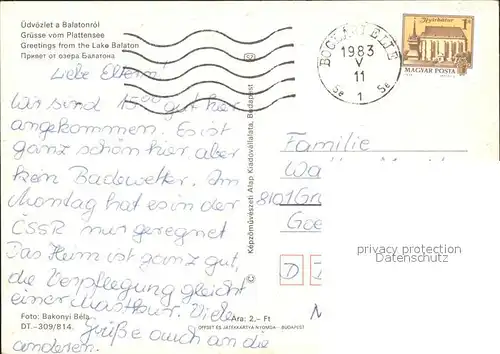 Üdvözlet a Balatonról
Grüsse vom Plattensee
Greetings from the Lake Balaton
Привет от озера Балатона
Liebe Eltern!
Wir sind 15⁰⁰ gut hier
angekommen. Es ist
ganz schön hier aber
kein Badewetter. Am
Montag hat es in der
ČSSR nur geregnet
Das Heim ist ganz gut,
die Verpflegung gleicht
einer Mastkur. Viele
Grüße auch an die
anderen.
Foto: Bakonyi Béla
DT.-309/814.
Ára: 2,- Ft
OFFSET ÉS JÁTÉKKÁRTYA NYOMDA - BUDAPEST
Képzőművészeti Alap Kiadóvállalata, Budapest
1983
V
11
1
Nyírbátor
1Ft
MAGYAR POSTA
Familie
8101
D
privacy protection
Datenschutz